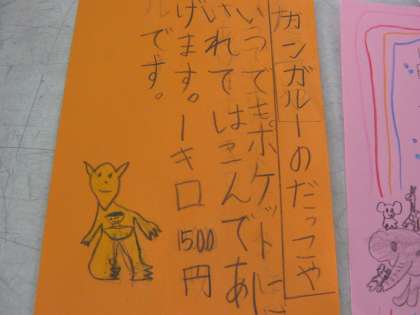 カンガルーのだっこや
いつでもポケットに
いれてはこんであ
げます。一キロ1500円
ルです。